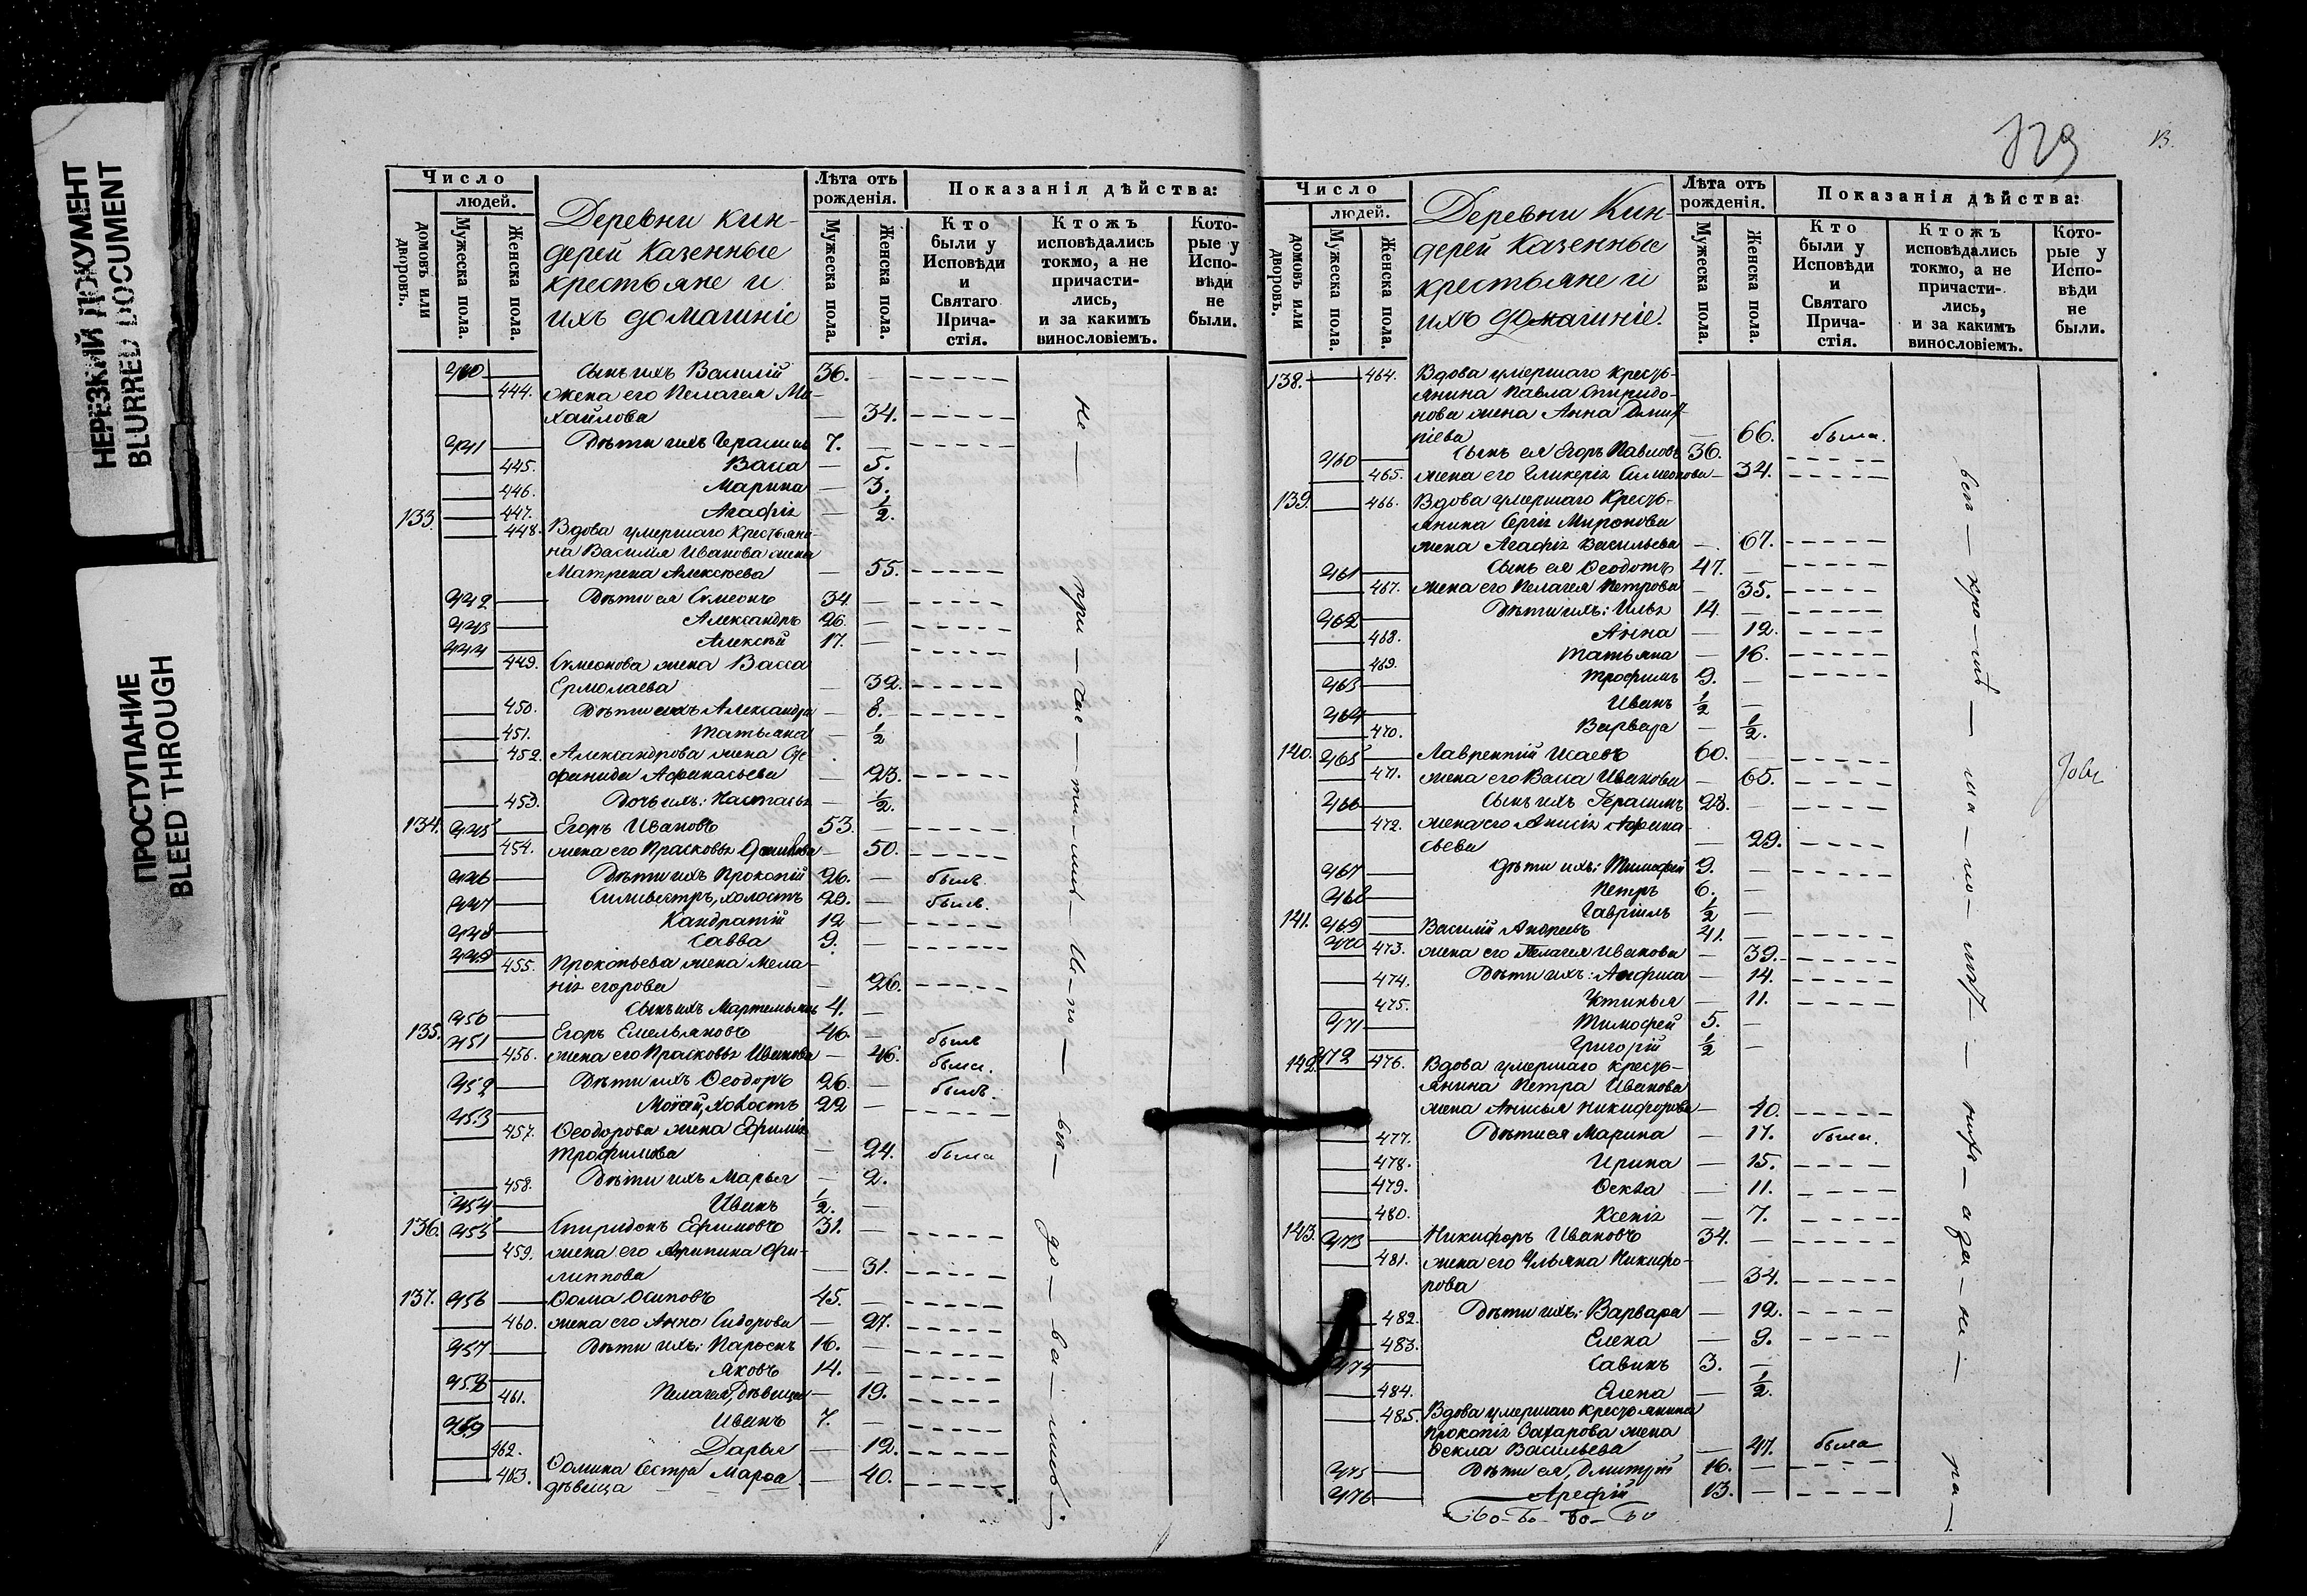 НЕРЕЗКИЙ ДОКУМЕНТ
BLURRED DOCUMENT
ПРОСТУПАНИЕ
BLEED THROUGH
Число
людей.
домовъ или дворовъ.
Мужеска пола.
Женска пола.
Деревни Кин-
дерей Казенные
крестьяне и
ихъ домашніе
Лѣта отъ рожденія.
Мужеска пола.
Женска пола.
Показанія дѣйства:
Кто были у Исповѣди и Святаго Прича-стія.
Ктожъ исповѣдались токмо, а не причасти-лись, и за какимъ винословіемъ.
Кото-рые у Испо-вѣди не были.
440 Сынъ ихъ Василій 36. —
444. жена его Пелагея Ми-
хайлова — 34.
441 Дѣти ихъ Герасимъ 7. —
445. Васса — 5.
446. Марина — 3.
447. Агафія — ½.
133. 448. Вдова умершаго Крестьяни-
на Василія Иванова жена
Матрена Алексѣева — 55.
442 Дѣти ея Симеонъ 34 —
443 Александръ 26. —
444 Алексѣй 17. —
449. Симеонова жена Васса
Ермолаева — 32.
450. Дѣти ихъ Александра — 8.
451. Татьяна — ½
452. Александрова жена
Афанасьева — 23.
453. Дочь ихъ: Настасья — ½.
134. 445 Егоръ Ивановъ 53. —
454. жена его Прасковья — 50.
446 Дѣти ихъ Прокопій 26. — былъ
447 Сильвестръ, холостъ 20. — былъ.
448 Кандратій 12 —
449 Савва 9. —
455. Прокопьева жена Мела-
нія Егорова — 26.
450 Сынъ ихъ Мартемьянъ 4. —
135. 451 Егоръ Емельяновъ 46. — былъ
456. жена его Прасковья Иванова — 46. была.
452 Дѣти ихъ Ѳеодоръ 26. — былъ.
453 Мойсей, холостъ 22 —
457. Ѳеодорова жена Ефимія
Трофимова — 24. была
458. Дѣти ихъ Марья — 2.
454 Иванъ ½. —
136. 455 Спиридонъ Ефимовъ 31. —
459. жена его Агрипина Фи-
липпова — 31.
137. 456 Ѳома Осиповъ 45. —
460. жена его Анна Сидорова — 27.
457 Дѣти ихъ: Парѳенъ 16. —
458 Яковъ 14. —
461. Пелагея, Дѣвица — 19.
459 Иванъ 7. —
462. Дарья — 12.
463. Ѳомина Сестра Марѳа — 40.
дѣвица
не — при — ча — сти — лись — Ис — по — вѣ — до — ва — лись —
329
Число
людей.
домовъ или дворовъ.
Мужеска пола.
Женска пола.
Деревни Кин-
дерей Казенные
крестьяне и
ихъ домашніе.
Лѣта отъ рожденія.
Мужеска пола.
Женска пола.
Показанія дѣйства:
Кто были у Исповѣди и Святаго Прича-стія.
Ктожъ исповѣдались токмо, а не причасти-лись, и за какимъ винословіемъ.
Кото-рые у Испо-вѣди не были.
138. 464. Вдова умершаго Кресть-
янина Павла Спиридо-
нова жена Анна Дмит-
ріева — 66. была.
460 Сынъ ея Егоръ Павловъ 36.
465. жена его Гликерія Симеонова — 34.
139. 466. Вдова умершаго Кресть-
янина Сергія Миронова
жена Агафія Васильева — 67.
461 Сынъ ея Ѳеодотъ 47. —
467. жена его Пелагея Петрова — 35.
462 Дѣти ихъ: Илья 14. —
468. Анна — 12.
469. Татьяна — 16.
463 Трофимъ 9. —
464 Иванъ ½ —
470. Варвара — ½.
140. 465 Лаврентій Исаевъ 60. —
471. жена его Васса Иванова — 65.
466 Сынъ ихъ Герасимъ 28. —
472. жена его Анисія Афана-
сьева — 29.
467 Дѣти ихъ: Тимофей 9. —
468 Петръ 6. —
469 Гавріилъ ½ —
141. 470 Василій Андреевъ 41. —
473. жена его Пелагея Иванова — 39.
474. Дѣти ихъ: Анфиса — 14.
475. Устинья — 11.
471 Тимофей 5. —
472 Григорій ½ —
142. 476. Вдова умершаго Кресть-
янина Петра Иванова
жена Анисья Никифорова — 40.
477. Дѣти ея Марина — 17. была.
478. Ирина — 15.
479. Ѳекла — 11.
480. Ксенія — 7.
143. 473 Никифоръ Ивановъ 34. —
481. жена его Ульяна Никифо-
рова — 34.
482. Дѣти ихъ: Варвара — 12.
483. Елена — 9.
474 Савинъ 3. —
484. Елена — ½.
485. Вдова умершаго Крестьянина
Прокопія Захарова жена
Ѳекла Васильева — 47. была
475 Дѣти ея, Дмитрій 16. —
476 Арефій 13. —